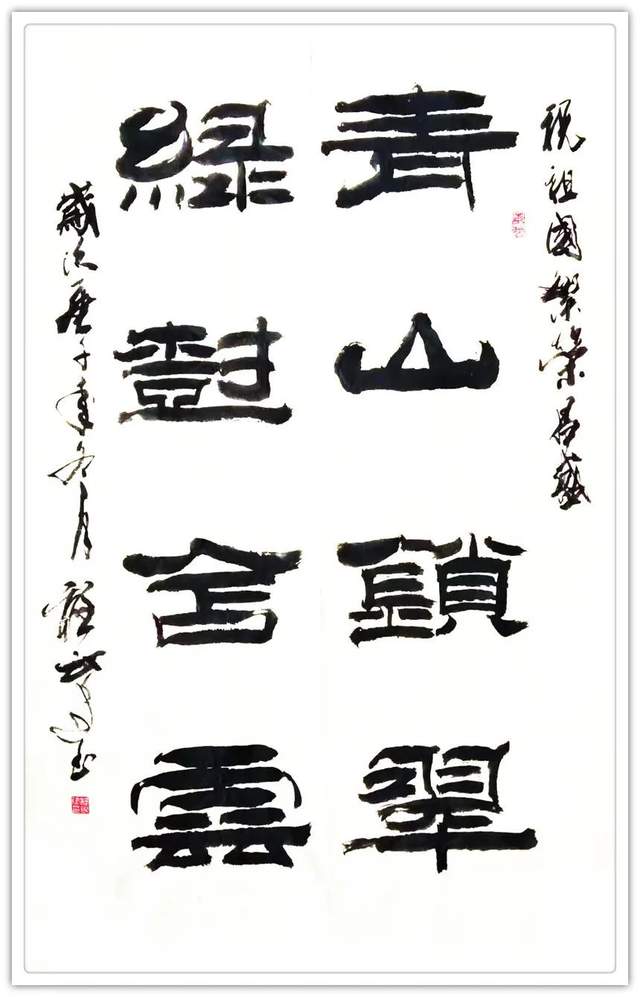 祝祖國繁榮昌盛
青山鎖翠
綠樹含雲
歲次庚子年冬月